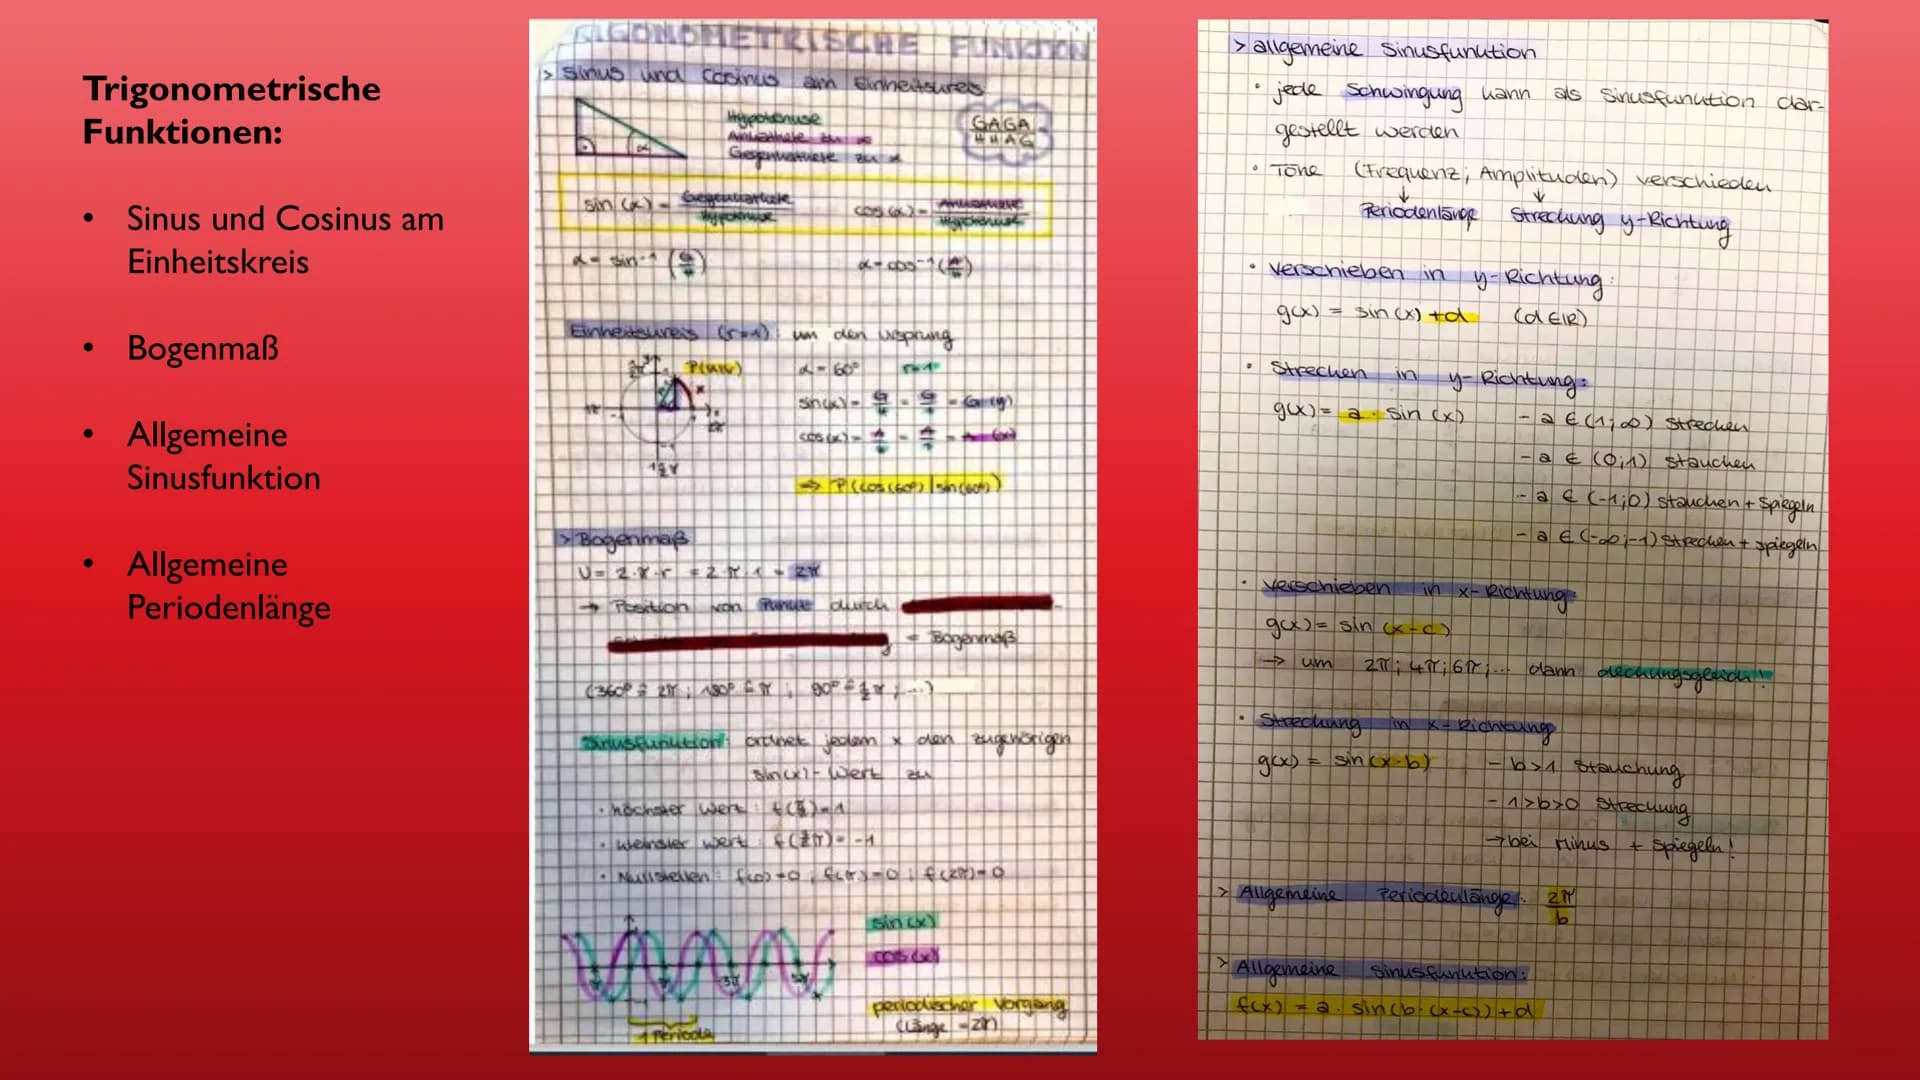 Trigonometrische
Funktionen:
• Sinus und Cosinus am
Einheitskreis
• Bogenmaß
• Allgemeine
Sinusfunktion
• Allgemeine
Periodenlänge
TRIGONOMETRISCHE FUNKTION
> Sinus und Cosinus am Einheitskreis
Hypotenuse
Ankathete zu α
Gegenkathete zu α
GAGA
HHAG
α
sin(α) = Gegenkathete / Hypotenuse
cos(α) = Ankathete / Hypotenuse
α = sin⁻¹ (G/H)
α = cos⁻¹ (A/H)
Einheitskreis (r=1): um den Ursprung
P(u|v)
α = 60°
r=1
sin(α) = G/H = G/1 = G (y)
cos(α) = A/H = A/1 = A (x)
⇒ P(cos(60°)|sin(60°))
> Bogenmaß
U = 2·π·r = 2·π·1 = 2π
→ Position von Punkte durch
= Bogenmaß
(360° ≙ 2π; 180° ≙ π; 90° ≙ ½π; ...)
Sinusfunktion: ordnet jedem x den zugehörigen
sin(x)-Wert zu
• höchster Wert: f(π/2)=1
• kleinster Wert: f(3/2π)= -1
• Nullstellen: f(0)=0; f(π)=0; f(2π)=0
sin(x)
cos(x)
periodischer Vorgang
(Länge = 2π)
1 Periode
> allgemeine Sinusfunktion
• jede Schwingung kann als Sinusfunktion dar-
gestellt werden
• Töne (Frequenz, Amplituden) verschieden
↓ ↓
Periodenlänge Streckung y-Richtung
• Verschieben in y-Richtung:
g(x) = sin(x) +d (d∈ℝ)
• Strecken in y-Richtung:
g(x) = a · sin(x) - a ∈ (1;∞) strecken
- a ∈ (0;1) stauchen
- a ∈ (-1;0) stauchen + Spiegeln
- a ∈ (-∞;-1) strecken + spiegeln
• Verschieben in x-Richtung:
g(x) = sin (x-c)
→ um 2π; 4π; 6π;... dann deckungsgleich!
• Streckung in x-Richtung
g(x) = sin(x·b) - b>1 Stauchung
- 1>b>0 Streckung
→ bei Minus + Spiegeln!
> Allgemeine Periodenlänge: 2π/b
> Allgemeine Sinusfunktion:
f(x) = a · sin(b·(x-c))+d